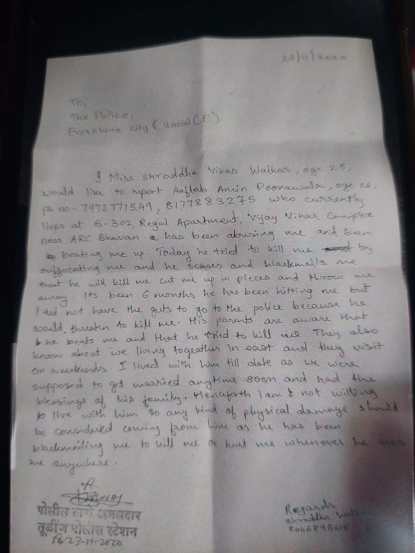 23/11/2020
To,
The Police,
I Miss Shraddha Vikas Walkar, age 25,
would like to report Aaftab Amin Poonawala, age 26,
ph no - who currently
lives at Regal Apartment, Vijay Vihar Complex
near has been abusing me and been
beating me up. Today he tried to kill me by
suffocating me and he scares and blackmails me
that he will kill me cut me up in pieces and throw me
away. Its been 6 months he has been hitting me but
I did not have the guts to go to the police because he
would threaten to kill me. His parents are aware that
he beats me and that he tried to kill me. They also
know about we living together and they visit
on weekends. I lived with him till date as we were
supposed to get married anytime soon and had the
blessings of his family. Henceforth I am not willing
to live with him so any kind of physical damage should
be considered coming from him as he has been
blackmailing me to kill me or hurt me whenever he sees
me anywhere.
Regards
पोलीस ठाणे अंमलदार
तुळींज पोलीस स्टेशन
23-11-2020